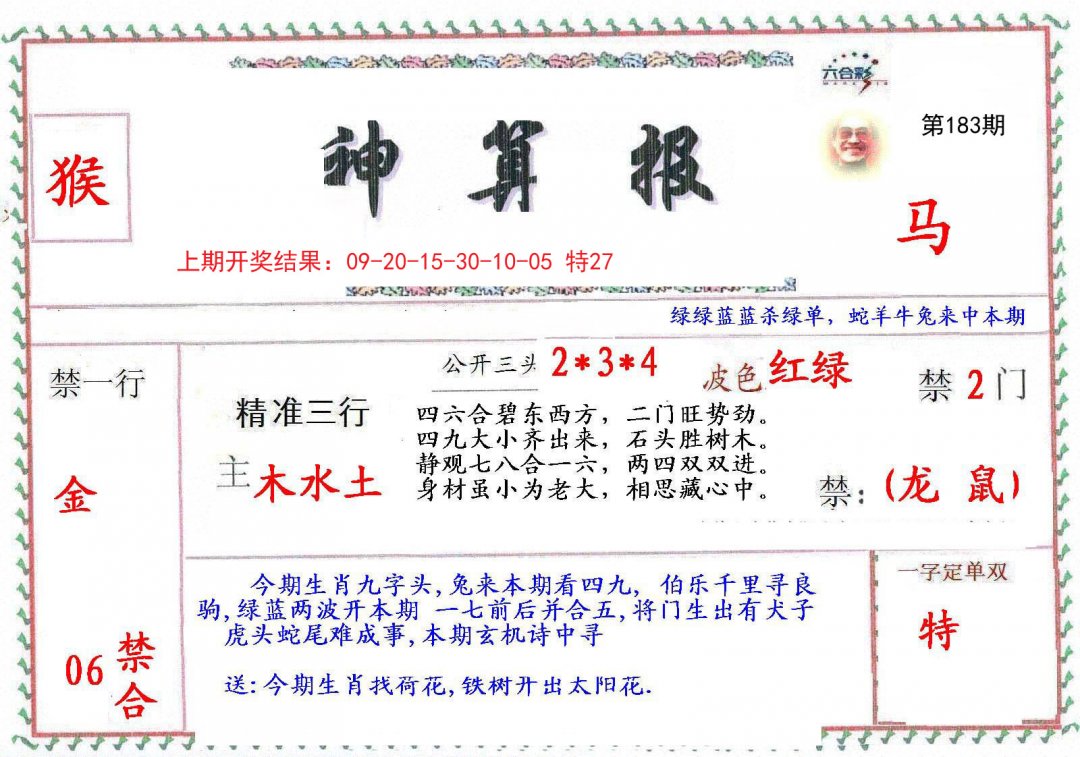 六合彩
第183期
猴
神算报
马
上期开奖结果：09-20-15-30-10-05 特27
绿绿蓝蓝杀绿单，蛇羊牛兔来中本期
禁一行
金
06
禁合
公开三头 2*3*4
波色 红绿
禁 2 门
精准三行
主 木水土
四六合碧东西方，二门旺势劲。
四九大小齐出来，石头胜树木。
静观七八合一六，两四双双进。
身材虽小为老大，相思藏心中。
禁：（龙 鼠）
今期生肖九字头,兔来本期看四九, 伯乐千里寻良
驹,绿蓝两波开本期 一七前后并合五,将门生出有犬子
虎头蛇尾难成事,本期玄机诗中寻
送:今期生肖找荷花,铁树开出太阳花.
一字定单双
特